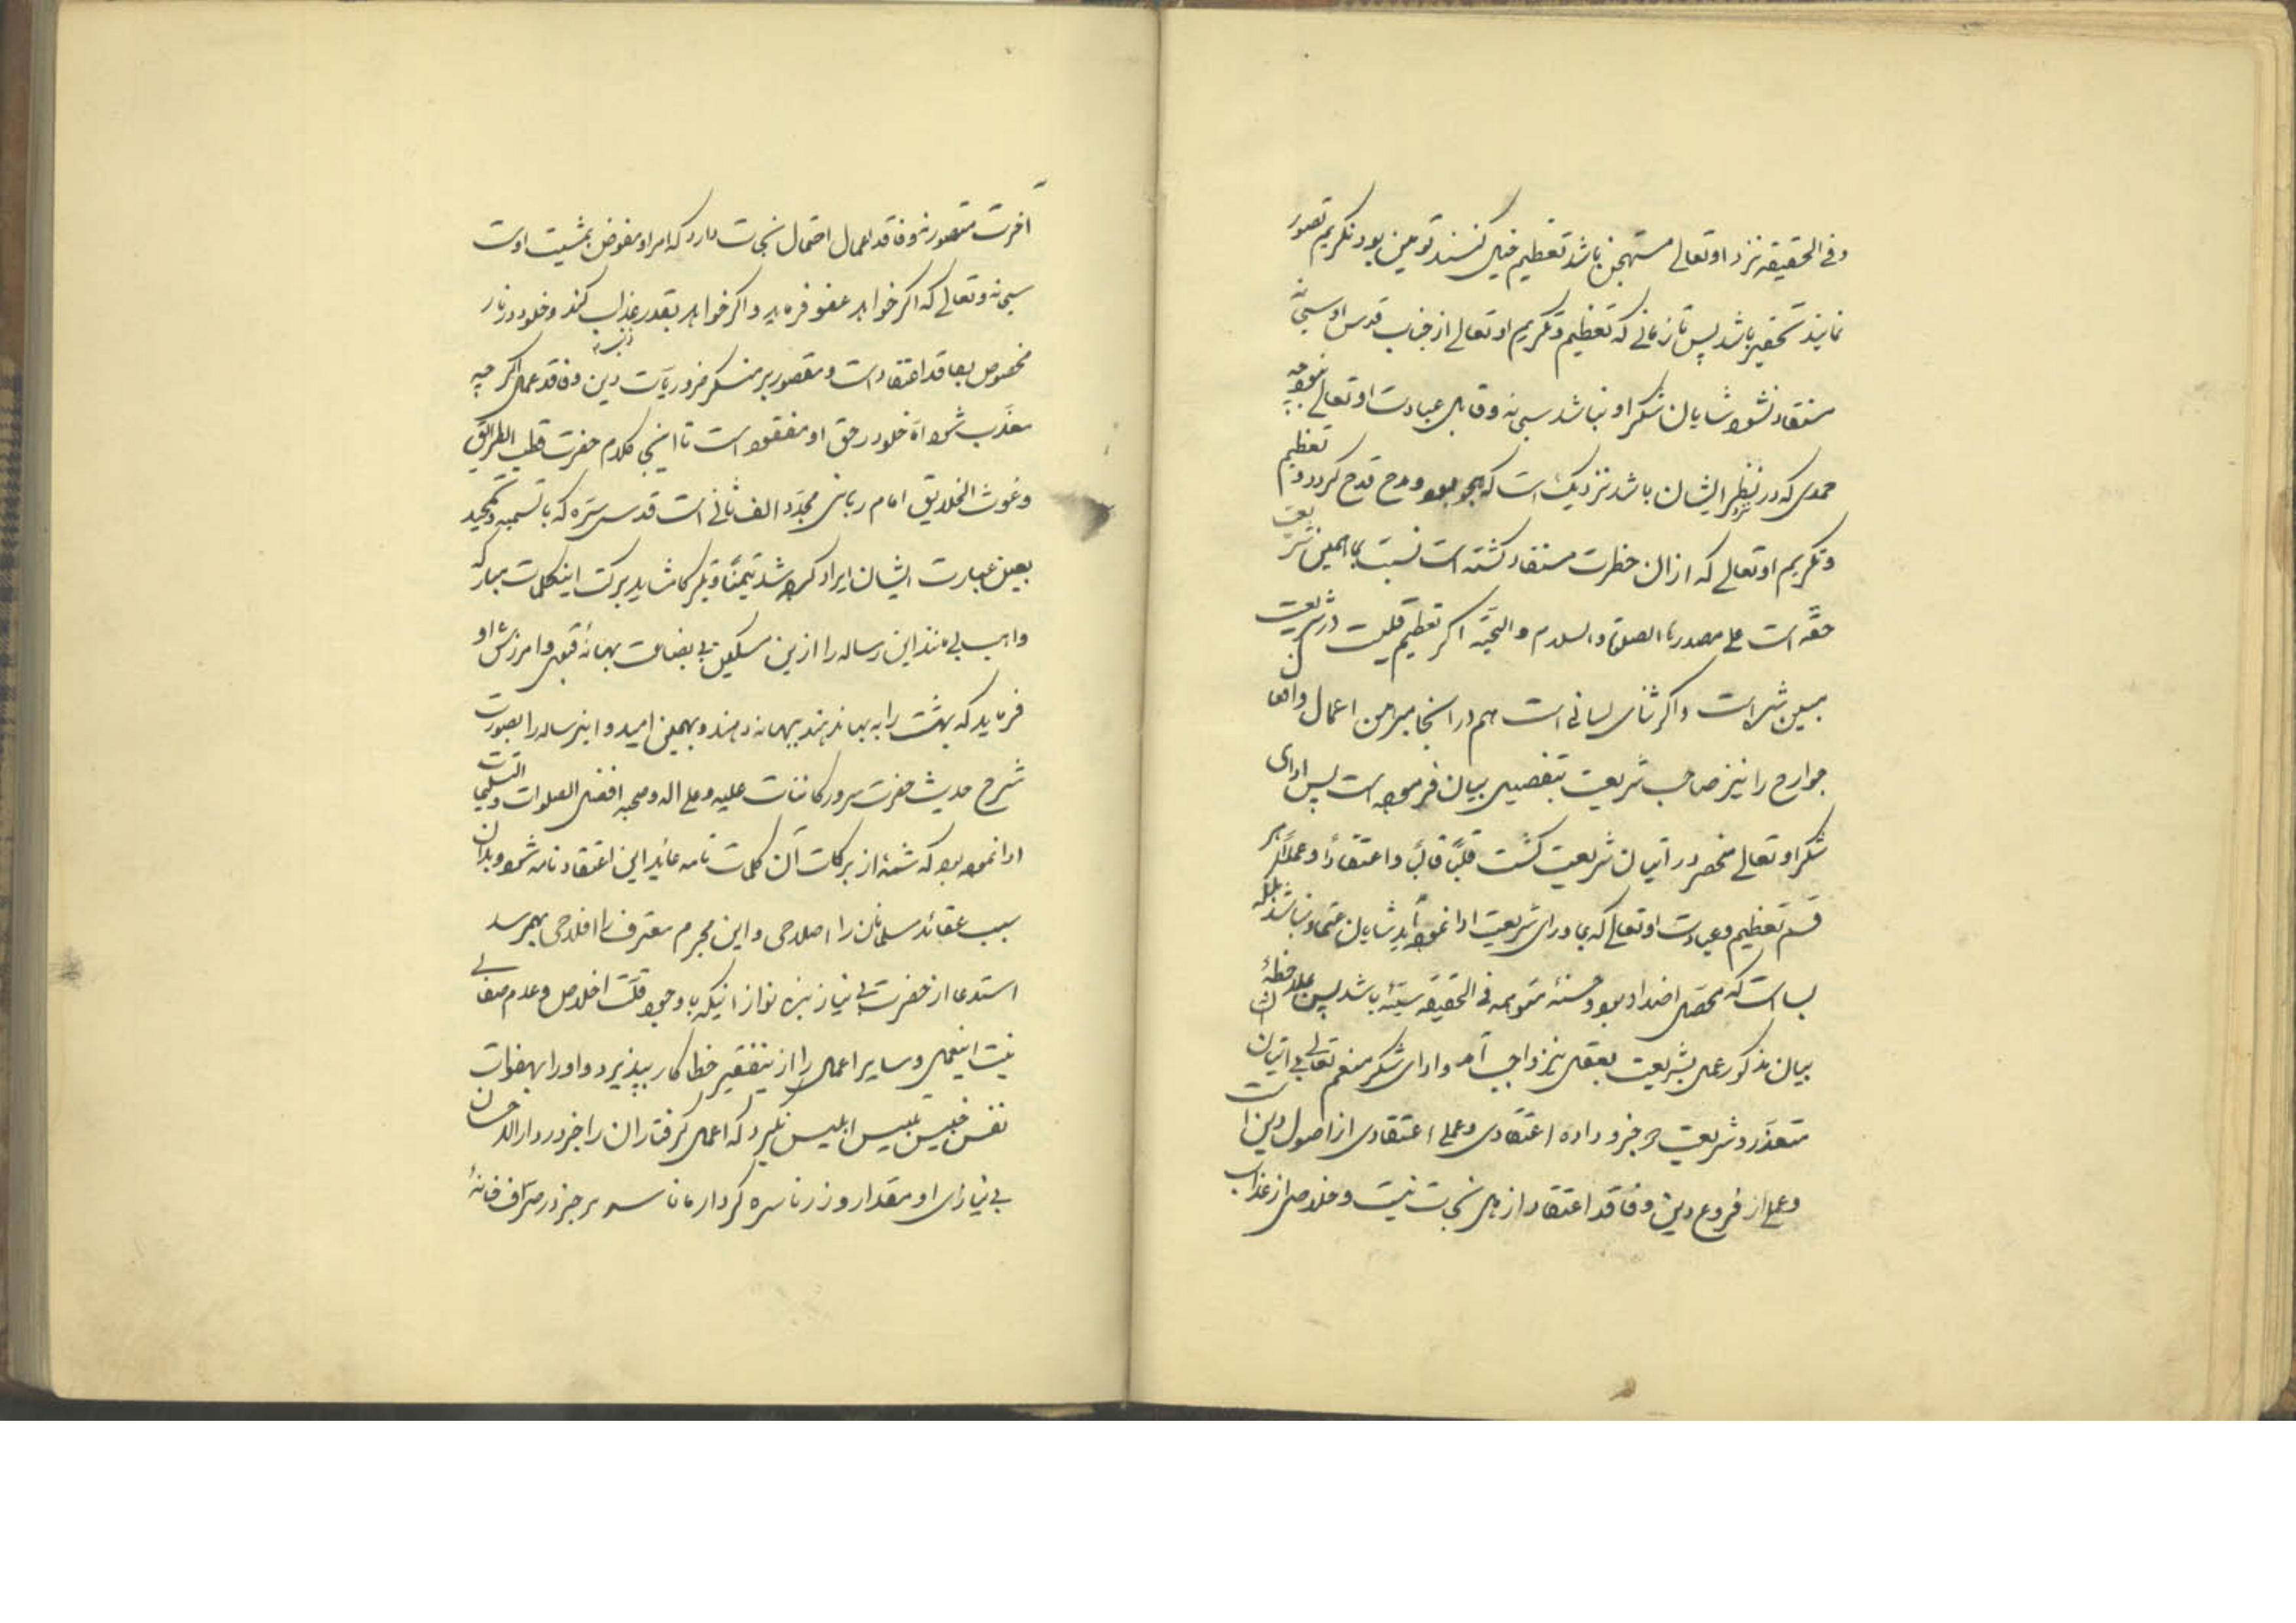 و فی الحقیقه نزد او تعالی مستهجن باشد تعظیم خیال کنند توهین بود تکریم تصور
نمایند تحقیر باشد پس تا زمانی که تعظیم و تکریم او تعالی از جناب قدس او سبحانه
مستفاد نشود شایان شکر او نباشد سبحانه و قابل عبادت او تعالی نبود چه
حمدی که در نظر ایشان باشد نزدیک است که هجو بود و مدح قدح گردد و تعظیم
و تکریم او تعالی که ازان حضرت مستفاد گشته است نسبت بما همین شریعت
حقّه است علی مصدرها الصلوة والسلام والتحیّه اگر تعظیم قلبیست در شریعت
مبین شده است و اگر ثنای لسانی است هم در آنجا مبرهن اعمال و افعال
جوارح را نیز صاحب شریعت بتفصیل بیان فرموده است پس ادای
شکر او تعالی منحصر در اتیان شریعت گشت قلبًا قالبًا و اعتقادًا و عملًا هر
قسم تعظیم و عبادت او تعالی که بماورای شریعت ادا نموده آید شایان اعتماد نباشد بلکه
بسا است که محصل اضداد بود و حسنهٔ متوهمه فی الحقیقه سیئه باشد پس بملاحظهٔ
بیان مذکور عمل بشریعت بعقل نیز واجب آمد و ادای شکر منعم تعالی بی اتیان
متعذّر و شریعت دو جزو دارد اعتقادی و عملی اعتقادی از اصول دین است
و عملی از فروع دین و فاقد اعتقاد از اهل نجات نیست و خلاصی از عذاب
آخرت متصور نه و فاقد اعمال احتمال نجات دارد که امر او مفوض بمشیت اوست
سبحانه و تعالی که اگر خواهد عفو فرماید و اگر خواهد بقدر ذنب عذاب کند و خلود در نار
مخصوص بفاقد اعتقاد است و مقصور بر منکر ضروریات دین و فاقد عمل اگر چه
معذّب شود اما خلود در حق او مفقود است تا اینجا کلام حضرت قطب الطرایق
و غوث الخلایق امام ربانی مجدّد الف ثانی است قدس سرّه که با تسمیه و تحمید
بعین عبارت ایشان ایراد کرده شد تیمنًا و تبرکًا شاید ببرکت این کلمات مبارکه
واهب بی منت این رساله را ازین مسکین بی بضاعت بهانهٔ قبول و آمرزش او
فرماید که بهشت را به بها ندهند ببهانه دهند و بهمین امید و این رساله را بصورت
شرح حدیث حضرت سرور کائنات علیه و علی اله و صحبه افضل الصلوات والتسلیمات
ادا نموده بود که شمهٔ از برکات آن کلمات تامه عاید این اعتقاد نامه شود و بدان
سبب عقائد مسلمانان را اصلاحی و این مجرم معترف را فلاحی بهم رسد
استدعا از حضرت بی نیاز بنده نواز آنیکه با وجود قلّت اخلاص و عدم صفای
نیت این عمل و سایر اعمال را ازین فقیر خطا کار بپذیرد و او را بهفوات
نفس خبیث تلبیس ابلیس نگیرد که اعمال گرفتاران را جز در دار الاحسان
بی نیازی او مقدار و زر ناسره کردار ما ناسره جز در صرّاف خانهٔ